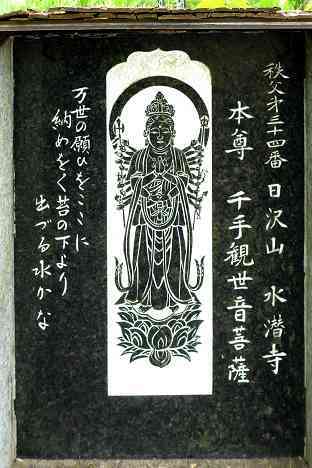 秩父才三十四番 日沢山 水潜寺
本尊 千手観世音菩薩
万世の願ひをここに
納めをく苔の下より
出づる水かな